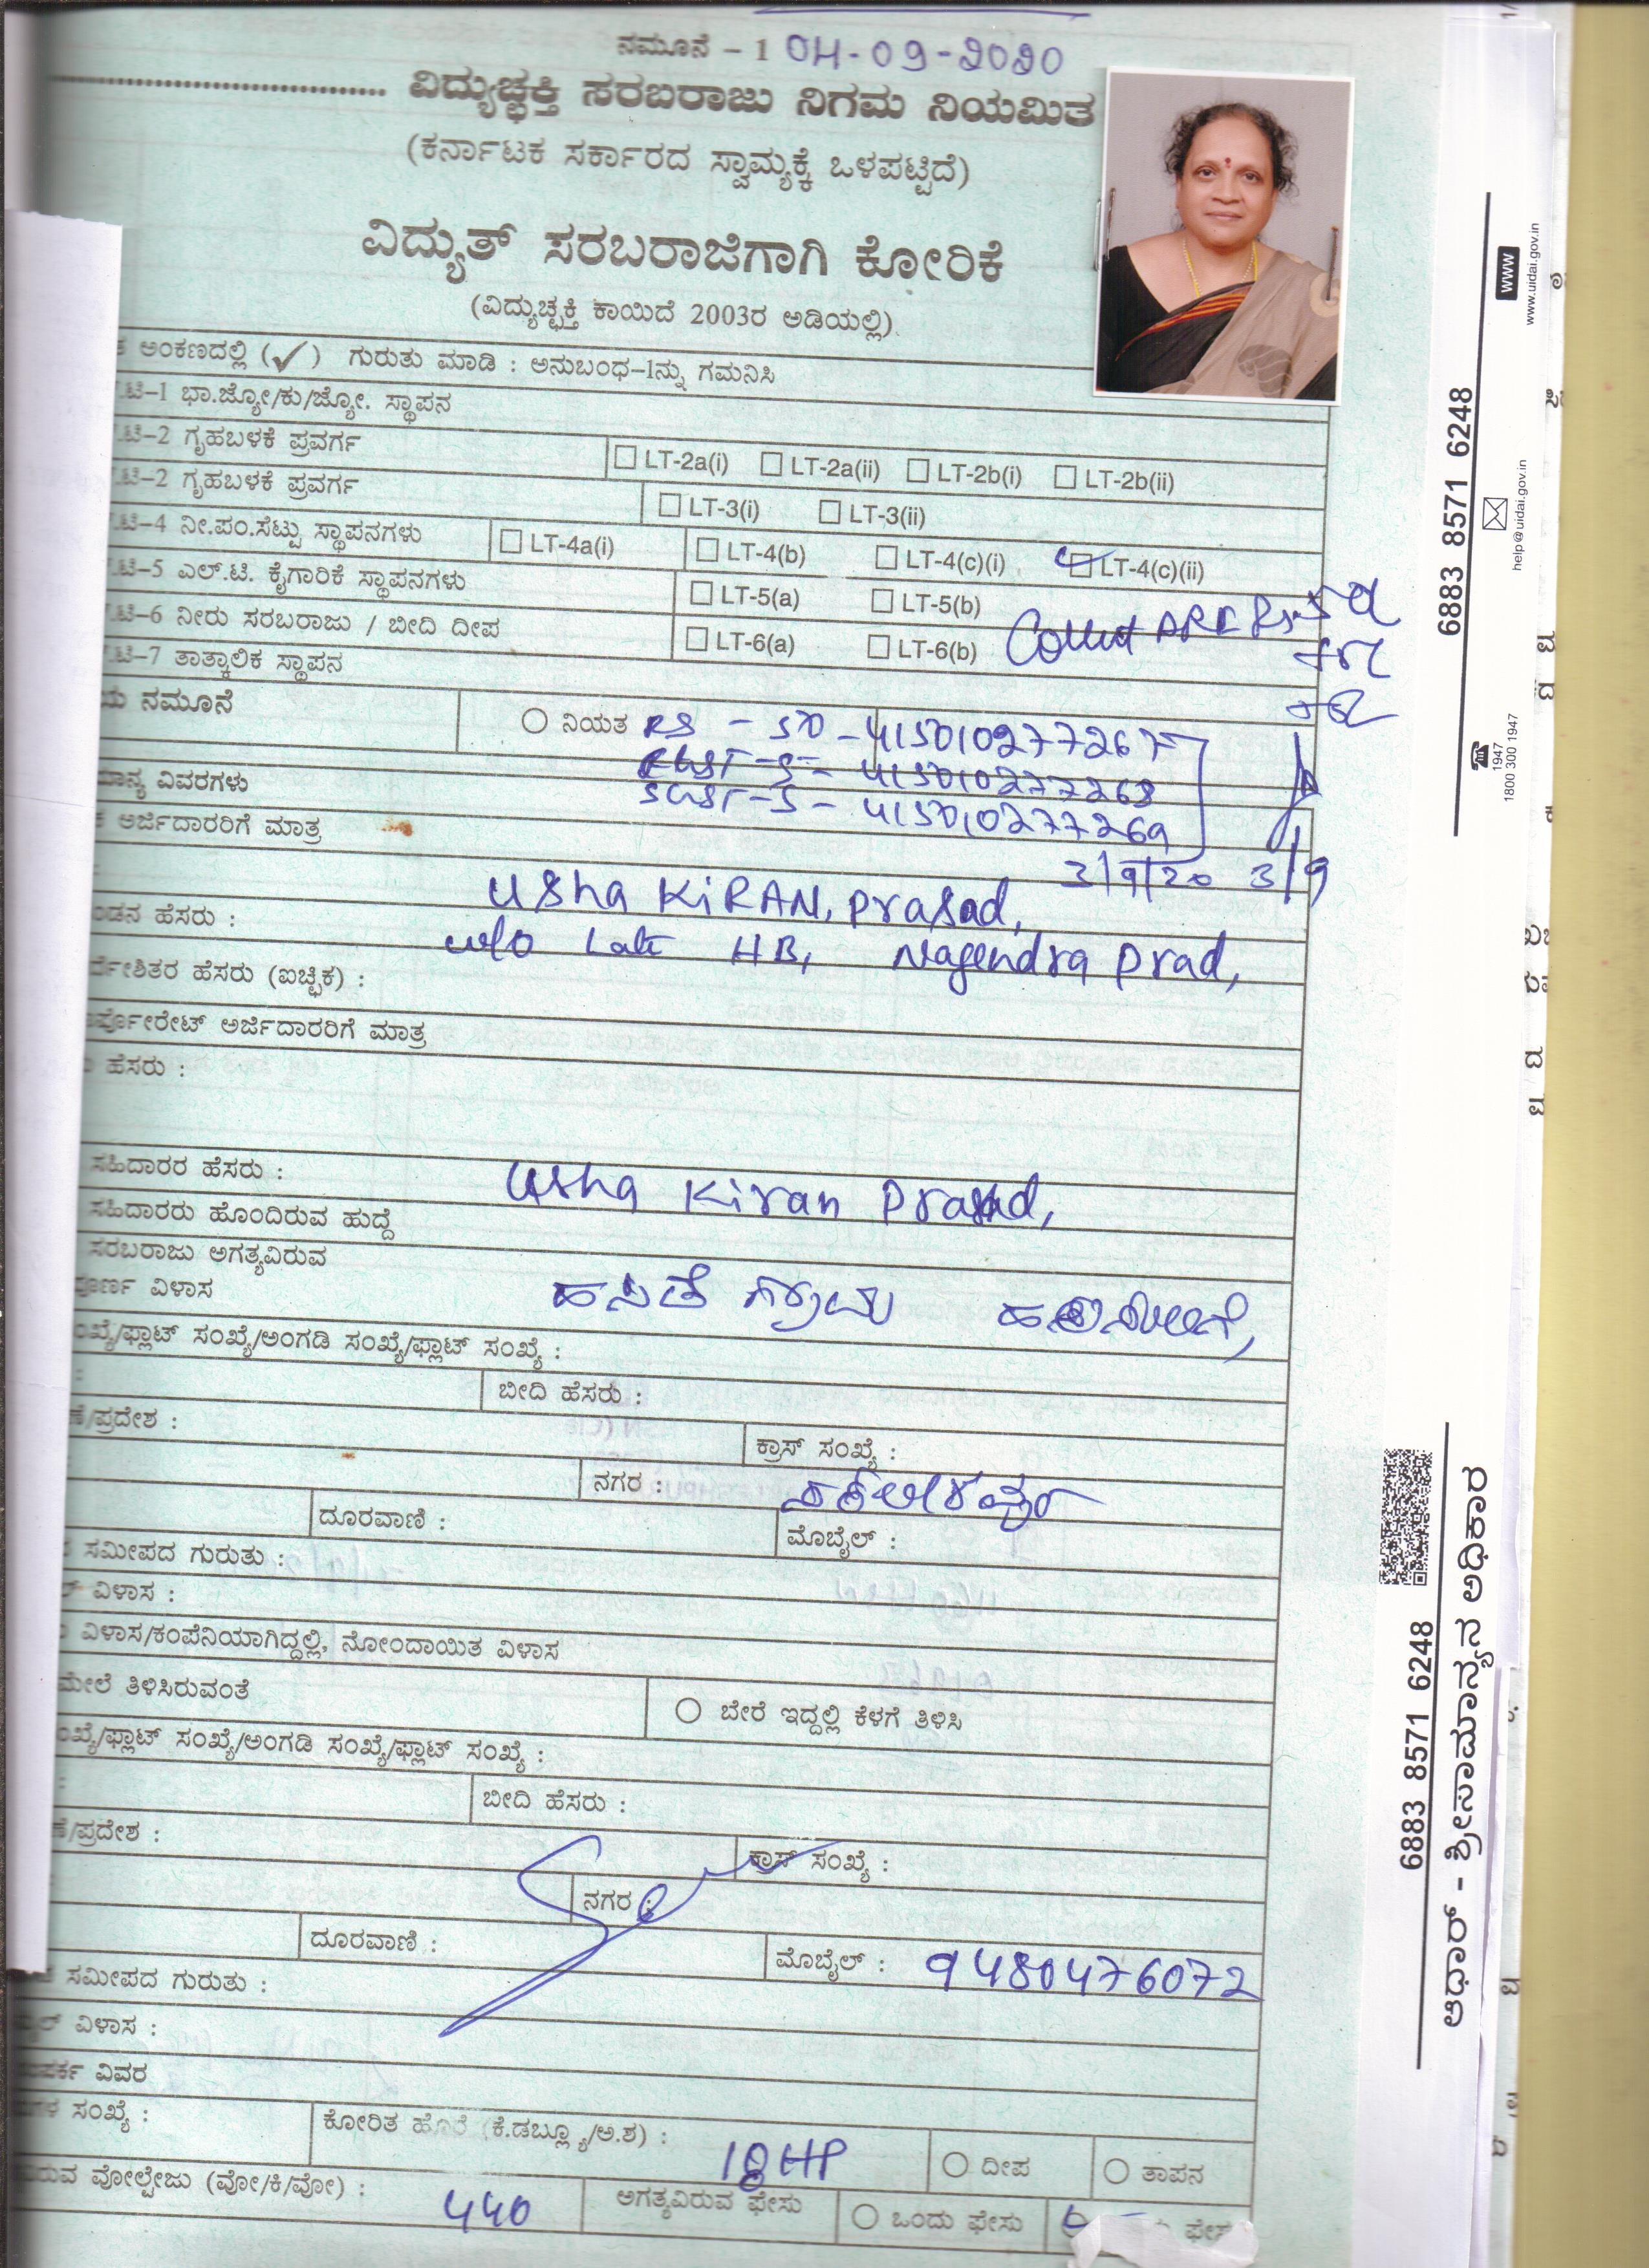 ನಮೂನೆ – 1 04-09-2020
ವಿದ್ಯುಚ್ಛಕ್ತಿ ಸರಬರಾಜು ನಿಗಮ ನಿಯಮಿತ
(ಕರ್ನಾಟಕ ಸರ್ಕಾರದ ಸ್ವಾಮ್ಯಕ್ಕೆ ಒಳಪಟ್ಟಿದೆ)
ವಿದ್ಯುತ್ ಸರಬರಾಜಿಗಾಗಿ ಕೋರಿಕೆ
(ವಿದ್ಯುಚ್ಛಕ್ತಿ ಕಾಯಿದೆ 2003ರ ಅಡಿಯಲ್ಲಿ)
ಅಂಕಣದಲ್ಲಿ (✓) ಗುರುತು ಮಾಡಿ : ಅನುಬಂಧ–1ನ್ನು ಗಮನಿಸಿ
.ಟಿ–1 ಭಾ.ಜ್ಯೋ/ಕು/ಜ್ಯೋ. ಸ್ಥಾಪನ
.ಟಿ–2 ಗೃಹಬಳಕೆ ಪ್ರವರ್ಗ LT-2a(i) LT-2a(ii) LT-2b(i) LT-2b(ii)
.ಟಿ–2 ಗೃಹಬಳಕೆ ಪ್ರವರ್ಗ LT-3(i) LT-3(ii)
.ಟಿ–4 ನೀ.ಪಂ.ಸೆಟ್ಟು ಸ್ಥಾಪನಗಳು LT-4a(i) LT-4(b) LT-4(c)(i) LT-4(c)(ii)
.ಟಿ–5 ಎಲ್.ಟಿ. ಕೈಗಾರಿಕೆ ಸ್ಥಾಪನಗಳು LT-5(a) LT-5(b)
.ಟಿ–6 ನೀರು ಸರಬರಾಜು / ಬೀದಿ ದೀಪ LT-6(a) LT-6(b)
.ಟಿ–7 ತಾತ್ಕಾಲಿಕ ಸ್ಥಾಪನ
ನಮೂನೆ ನಿಯತ RS – 50 – 415010277267
– 415010277268
ವಿವರಗಳು SGST – 5 – 415010277269
ಅರ್ಜಿದಾರರಿಗೆ ಮಾತ್ರ
3/9/20 3/9
Usha KiRAN, Prasad,
ಹೆಸರು : w/o Late HB, Nagendra Prad,
ಹೆಸರು (ಐಚ್ಛಿಕ) :
ಅರ್ಜಿದಾರರಿಗೆ ಮಾತ್ರ
ಹೆಸರು :
ಸಹಿದಾರರ ಹೆಸರು : Usha Kiran Prasad,
ಸಹಿದಾರರು ಹೊಂದಿರುವ ಹುದ್ದೆ
ಸರಬರಾಜು ಅಗತ್ಯವಿರುವ
ವಿಳಾಸ
ಸಂಖ್ಯೆ/ಅಂಗಡಿ ಸಂಖ್ಯೆ/ಫ್ಲಾಟ್ ಸಂಖ್ಯೆ :
ಬೀದಿ ಹೆಸರು :
/ಪ್ರದೇಶ : ಕ್ರಾಸ್ ಸಂಖ್ಯೆ :
ನಗರ :
ದೂರವಾಣಿ : ಮೊಬೈಲ್ :
ಸಮೀಪದ ಗುರುತು :
ವಿಳಾಸ :
ವಿಳಾಸ/ಕಂಪೆನಿಯಾಗಿದ್ದಲ್ಲಿ, ನೋಂದಾಯಿತ ವಿಳಾಸ
ಮೇಲೆ ತಿಳಿಸಿರುವಂತೆ ಬೇರೆ ಇದ್ದಲ್ಲಿ ಕೆಳಗೆ ತಿಳಿಸಿ
ಸಂಖ್ಯೆ/ಅಂಗಡಿ ಸಂಖ್ಯೆ/ಫ್ಲಾಟ್ ಸಂಖ್ಯೆ :
ಬೀದಿ ಹೆಸರು :
/ಪ್ರದೇಶ : ಕ್ರಾಸ್ ಸಂಖ್ಯೆ :
ನಗರ :
ದೂರವಾಣಿ : ಮೊಬೈಲ್ : 9480476072
ಸಮೀಪದ ಗುರುತು :
ವಿಳಾಸ :
ವಿವರ
ಸಂಖ್ಯೆ : ಕೋರಿತ ಹೊರೆ (ಕೆ.ಡಬ್ಲ್ಯೂ/ಅ.ಶ) : 18 HP ದೀಪ ತಾಪನ
ವೋಲ್ಟೇಜು (ವೋ/ಕಿ/ವೋ) : 440 ಅಗತ್ಯವಿರುವ ಫೇಸು ಒಂದು ಫೇಸು
6883 8571 6248
1947
1800 300 1947
help@uidai.gov.in
WWW
www.uidai.gov.in
6883 8571 6248
ಆಧಾರ್ - ಶ್ರೀಸಾಮಾನ್ಯನ ಅಧಿಕಾರ